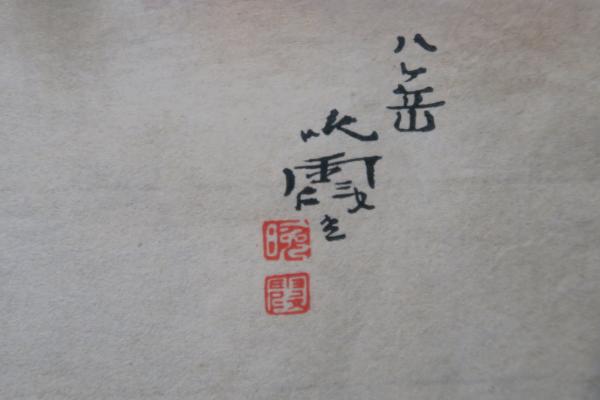 八ヶ岳
晩霞
晩